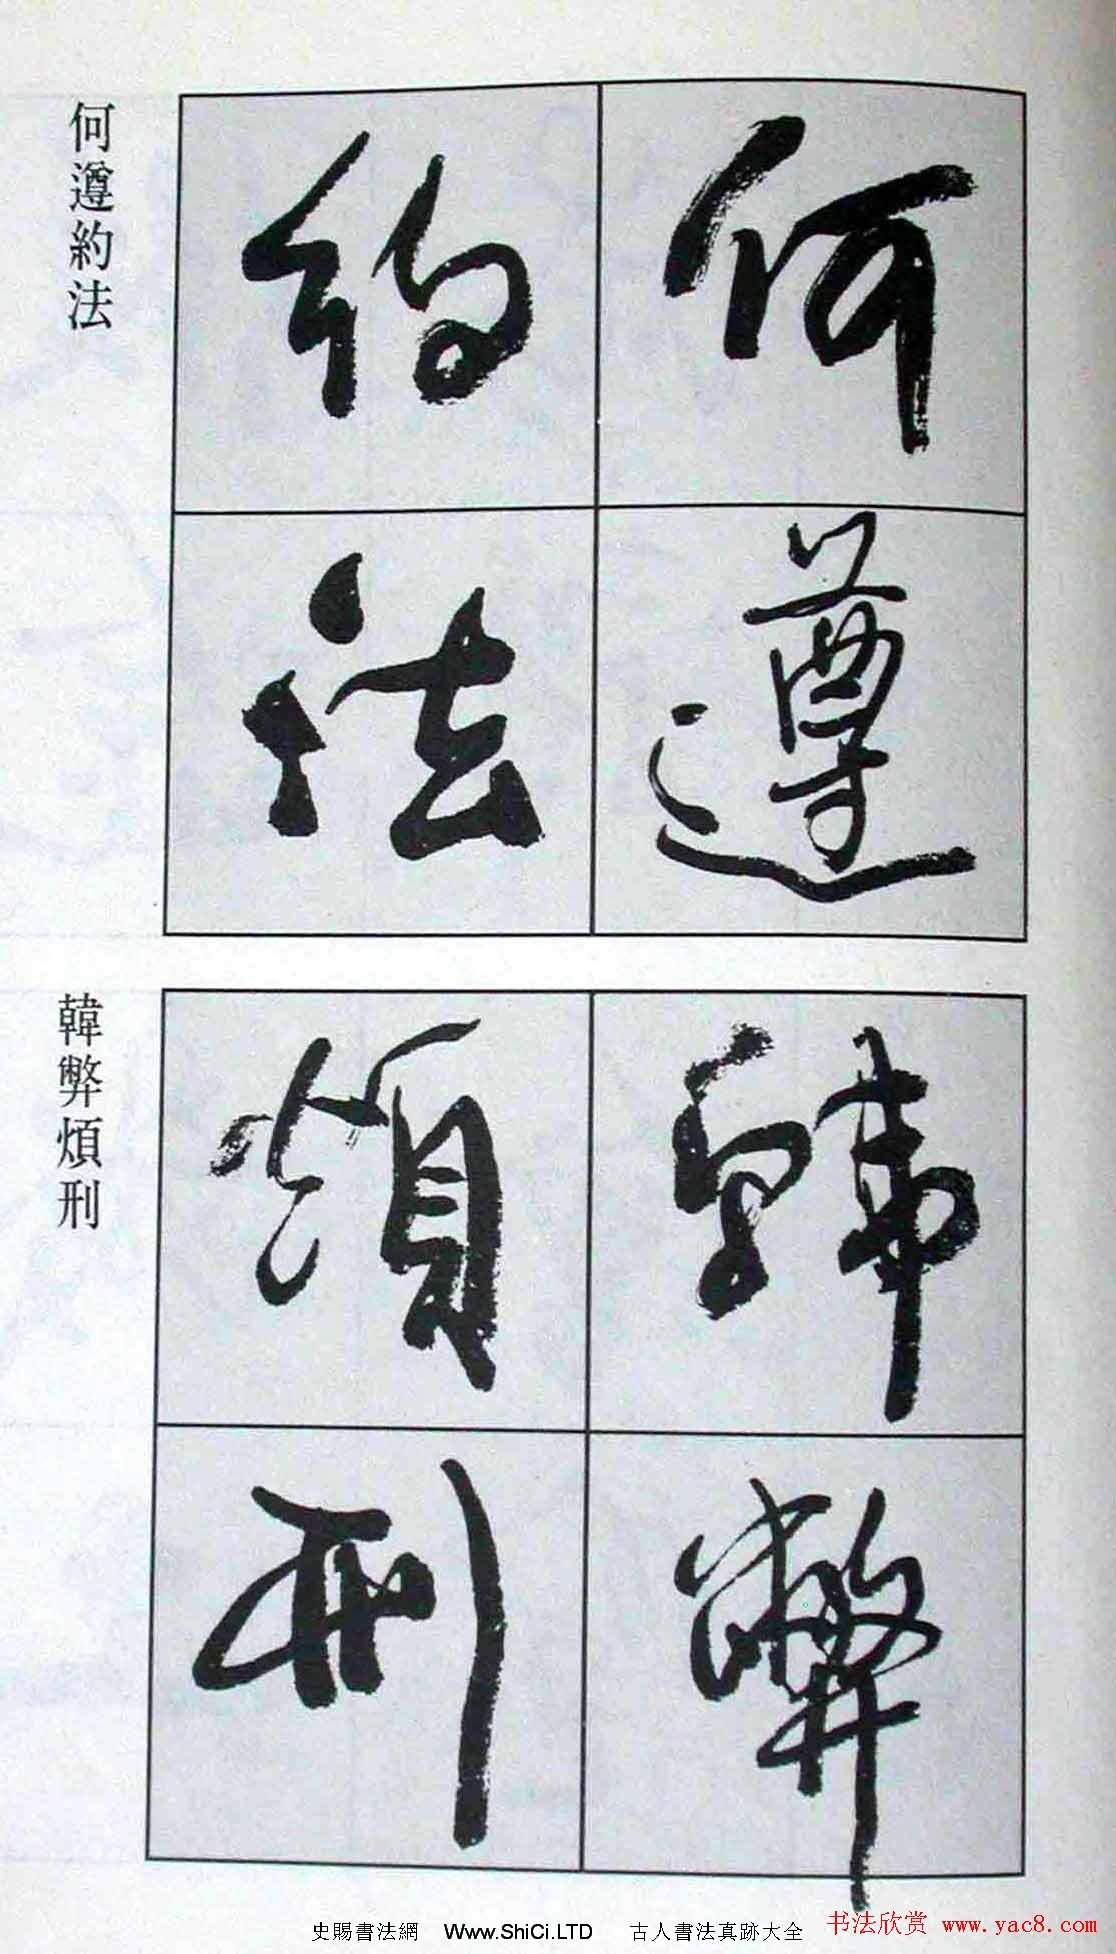 何遵
約法
何遵約法
韓弊
煩刑
韓弊煩刑
史賜書法網 Www.ShiCi.LTD 古人書法真跡大全
书法欣赏 www.yac8.com